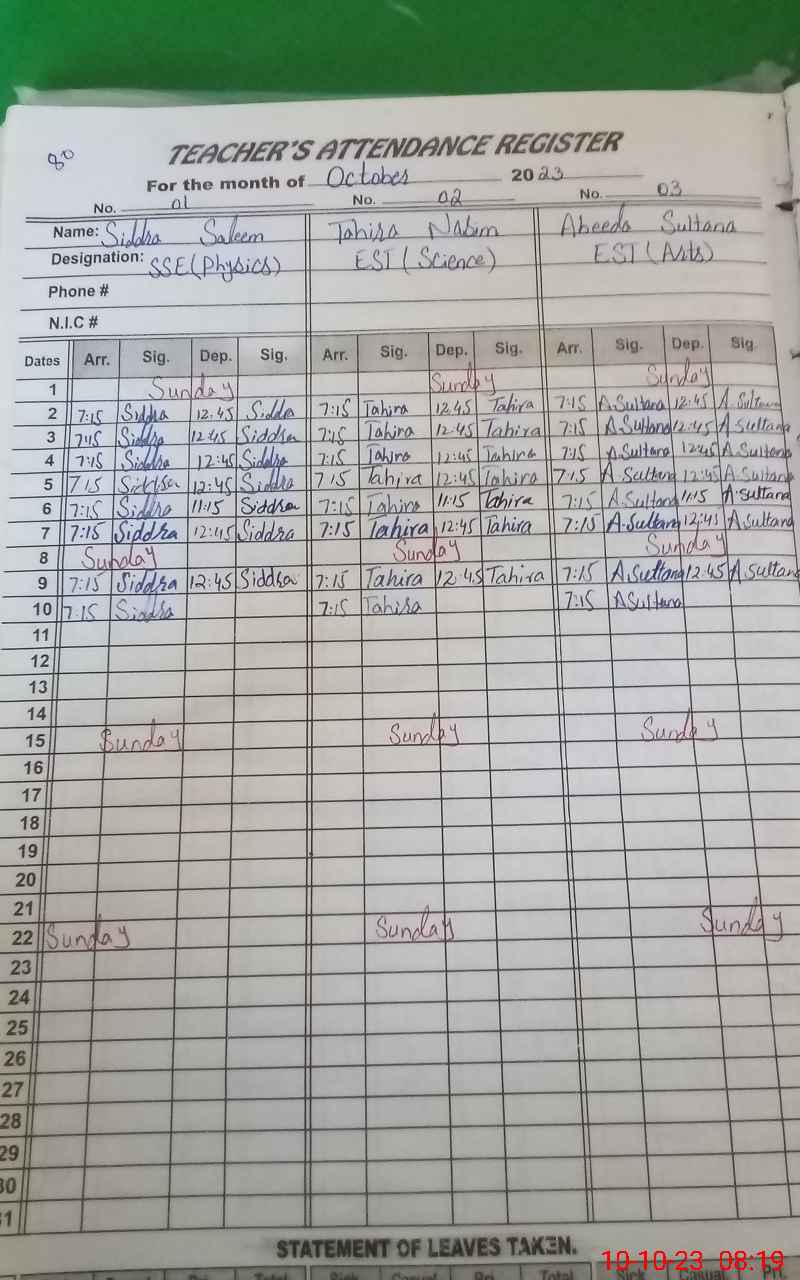 80
TEACHER'S ATTENDANCE REGISTER
For the month of October 2023
No. 01 No. 02 No. 03
Name: Siddra Saleem Tahira Nasim Abeeda Sultana
Designation: SSE (Physics) EST (Science) EST (Arts)
Phone #
N.I.C #
Dates Arr. Sig. Dep. Sig. Arr. Sig. Dep. Sig. Arr. Sig. Dep. Sig.
1 Sunday Sunday Sunday
2 7:15 Siddra 12:45 Siddra 7:15 Tahira 12:45 Tahira 7:15 A.Sultana 12:45 A.Sultana
3 7:15 Siddra 12:45 Siddra 7:15 Tahira 12:45 Tahira 7:15 A.Sultana 12:45 A.Sultana
4 7:15 Siddra 12:45 Siddra 7:15 Tahira 12:45 Tahira 7:15 A.Sultana 12:45 A.Sultana
5 7:15 Siddra 12:45 Siddra 7:15 Tahira 12:45 Tahira 7:15 A.Sultana 12:45 A.Sultana
6 7:15 Siddra 11:15 Siddra 7:15 Tahira 11:15 Tahira 7:15 A.Sultana 11:15 A.Sultana
7 7:15 Siddra 12:45 Siddra 7:15 Tahira 12:45 Tahira 7:15 A.Sultana 12:45 A.Sultana
8 Sunday Sunday Sunday
9 7:15 Siddra 12:45 Siddra 7:15 Tahira 12:45 Tahira 7:15 A.Sultana 12:45 A.Sultana
10 7:15 Siddra 7:15 Tahira 7:15 A Sultana
11
12
13
14
15 Sunday Sunday Sunday
16
17
18
19
20
21
22 Sunday Sunday Sunday
23
24
25
26
27
28
29
30
31
STATEMENT OF LEAVES TAKEN.
10-10-23 08:19